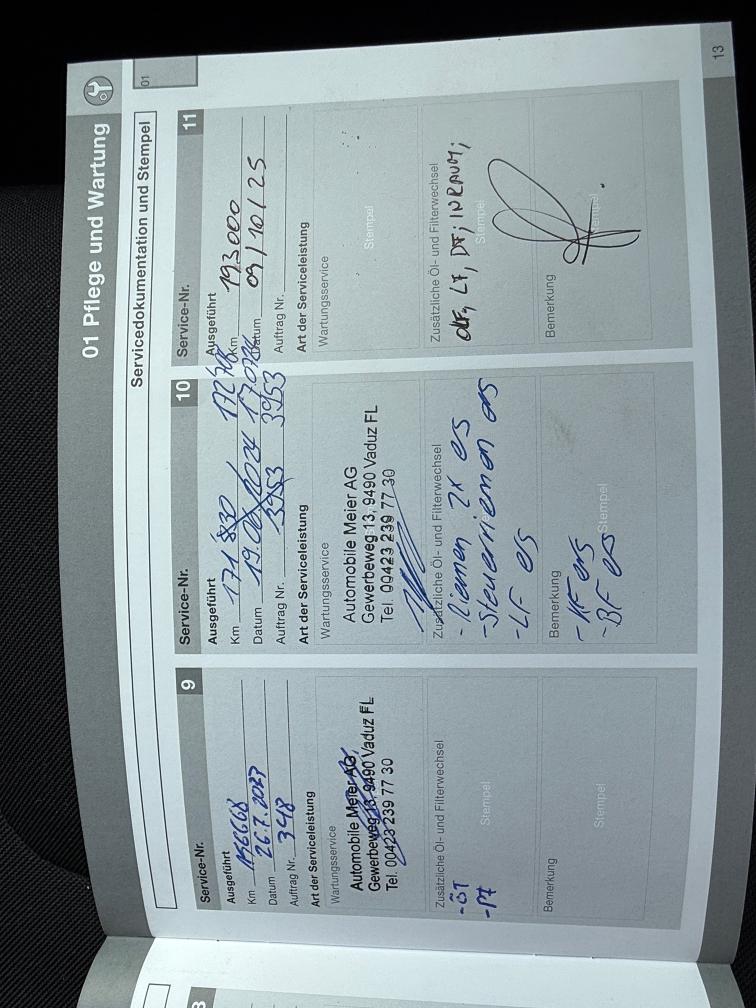 01 Pflege und Wartung
01
Servicedokumentation und Stempel
Service-Nr. 9
Ausgeführt
Km 156668
Datum 26.7.2023
Auftrag Nr. 348
Art der Serviceleistung
Wartungsservice
Automobile Meier AG
Gewerbeweg 13, 9490 Vaduz FL
Tel. 00423 239 77 30
Zusätzliche Öl- und Filterwechsel
-ÖT
-PF
Stempel
Bemerkung
Stempel
Service-Nr. 10
Ausgeführt
Km 171 830
Datum 19.06.2024
Auftrag Nr. 3953 3953
Art der Serviceleistung
Wartungsservice
Automobile Meier AG
Gewerbeweg 13, 9490 Vaduz FL
Tel. 00423 239 77 30
Zusätzliche Öl- und Filterwechsel
- Riemen 2x es
- Steuerriemen es
- LF es
Bemerkung
- KF ers
- BF ers
Stempel
Service-Nr. 11
Ausgeführt
Km 193000
Datum 09/10/25
Auftrag Nr.
Art der Serviceleistung
Wartungsservice
Stempel
Zusätzliche Öl- und Filterwechsel
LF, DF; INRAUM;
Stempel
Bemerkung
Stempel
13